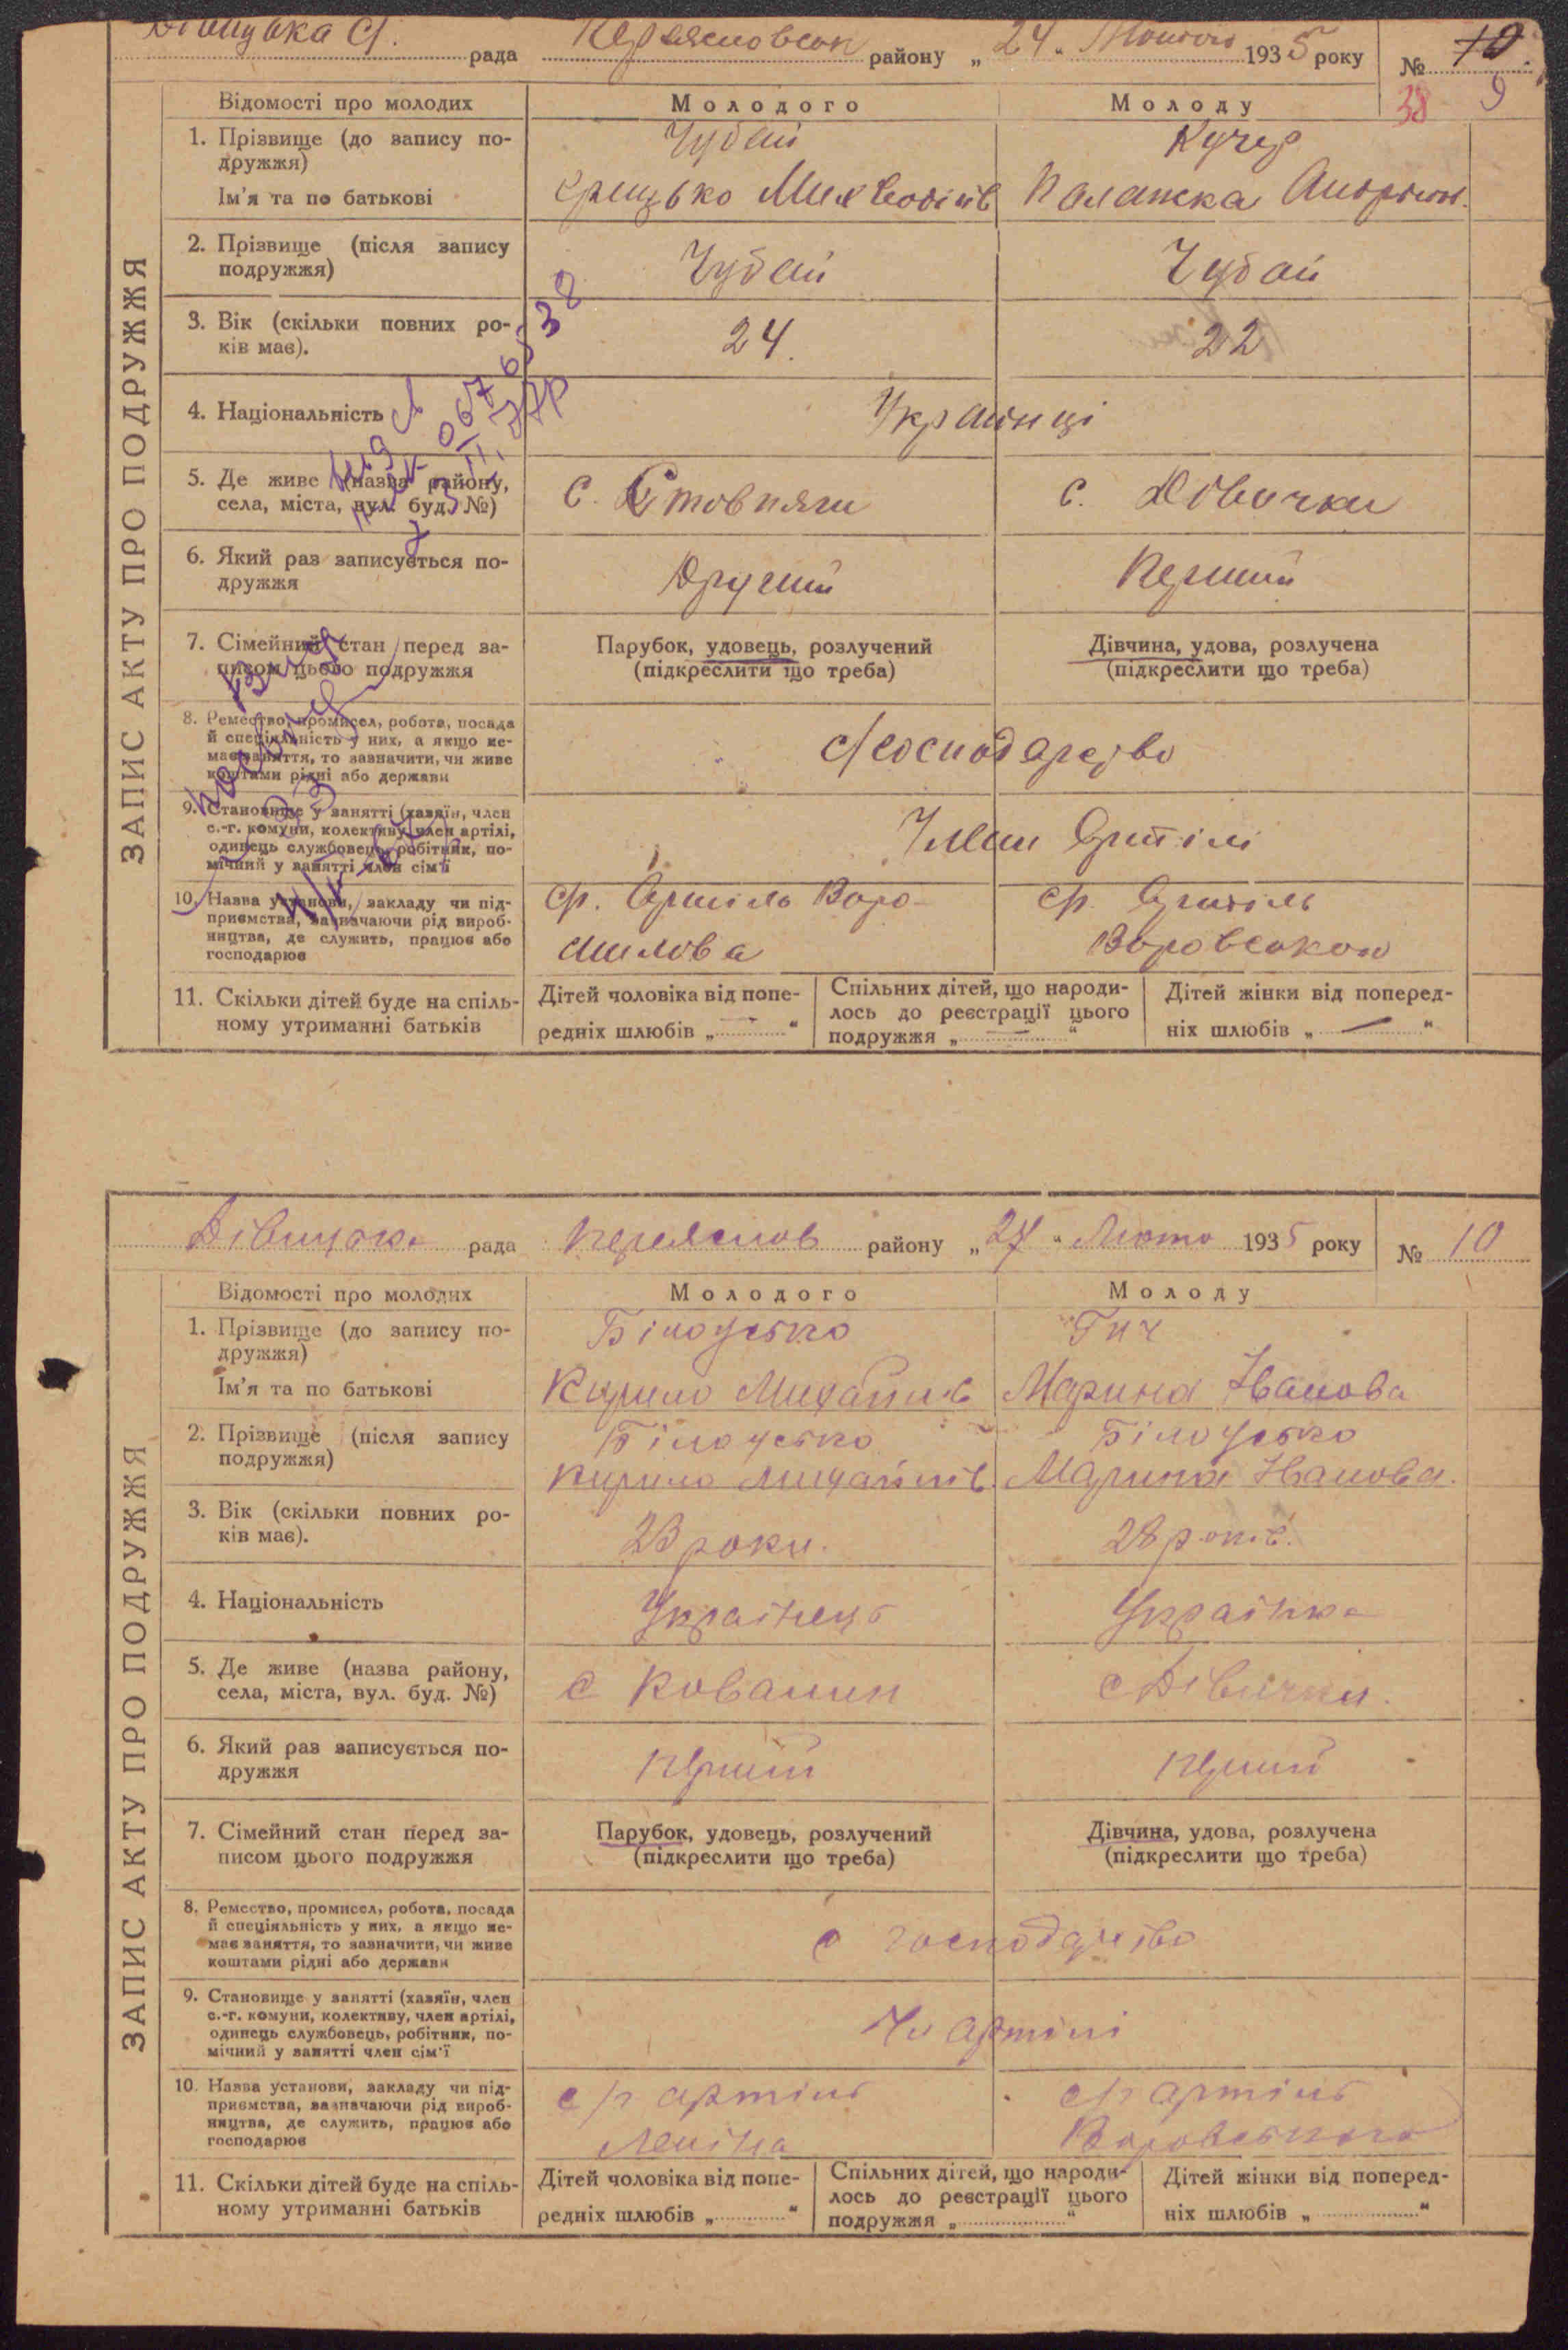 Дівицька с/. рада Переяславськ району „24“ Лютого 1935 року № 10
38 9
ЗАПИС АКТУ ПРО ПОДРУЖЖЯ
Відомості про молодих Молодого Молоду
1. Прізвище (до запису по- Чубай Кучер
дружжя)
Ім'я та по батькові Грицько Палажка
2. Прізвище (після запису Чубай Чубай
подружжя)
3. Вік (скільки повних ро- 24. 22
ків має).
4. Національність Українці
5. Де живе (назва району, с. Стовпяги с. Дівички
села, міста, вул. буд. №)
6. Який раз записується по- Другий Перший
дружжя
7. Сімейний стан перед за- Парубок, удовець, розлучений Дівчина, удова, розлучена
писом цього подружжя (підкреслити що треба) (підкреслити що треба)
8. Ремество, промисел, робота, посада
й спеціяльність у них, а якщо не- с/господарство
має заняття, то зазначити, чи живе
коштами рідні або держави
9. Становище у занятті (хазяїн, член
с.-г. комуни, колективу, член артілі, Член Артілі
одинець службовець, робітник, по-
мічний у занятті член сім'ї
10. Назва установи, закладу чи під- ср. Артіль Воро- ср. Артіль
приємства, зазначаючи рід вироб-
ництва, де служить, працює або шилова Воровського
господарює
11. Скільки дітей буде на спіль- Дітей чоловіка від попе- Спільних дітей, що народи- Дітей жінки від поперед-
ному утриманні батьків редніх шлюбів „ — “ лось до реєстрації цього ніх шлюбів „ — “
подружжя „ — “
Дівицька рада Переяслов району „27“ Люто 1935 року № 10
ЗАПИС АКТУ ПРО ПОДРУЖЖЯ
Відомості про молодих Молодого Молоду
1. Прізвище (до запису по- Білоусько Гич
дружжя)
Ім'я та по батькові Кирило Михайлів Марина Іванова
2. Прізвище (після запису Білоусько Білоусько
подружжя) Кирило Михайлів Марина Іванова.
3. Вік (скільки повних ро- 23 роки. 28 років.
ків має).
4. Національність Українець Українка
5. Де живе (назва району, с Ковалин с Дівички.
села, міста, вул. буд. №)
6. Який раз записується по- перший перший
дружжя
7. Сімейний стан перед за- Парубок, удовець, розлучений Дівчина, удова, розлучена
писом цього подружжя (підкреслити що треба) (підкреслити що треба)
8. Ремество, промисел, робота, посада
й спеціяльність у них, а якщо не- с господарство
має заняття, то зазначити, чи живе
коштами рідні або держави
9. Становище у занятті (хазяїн, член
с.-г. комуни, колективу, член артілі, Чл артілі
одинець службовець, робітник, по-
мічний у занятті член сім'ї
10. Назва установи, закладу чи під- с/г артіль с/г артіль
приємства, зазначаючи рід вироб-
ництва, де служить, працює або Леніна Воровського
господарює
11. Скільки дітей буде на спіль- Дітей чоловіка від попе- Спільних дітей, що народи- Дітей жінки від поперед-
ному утриманні батьків редніх шлюбів „ “ лось до реєстрації цього ніх шлюбів „ “
подружжя „ “